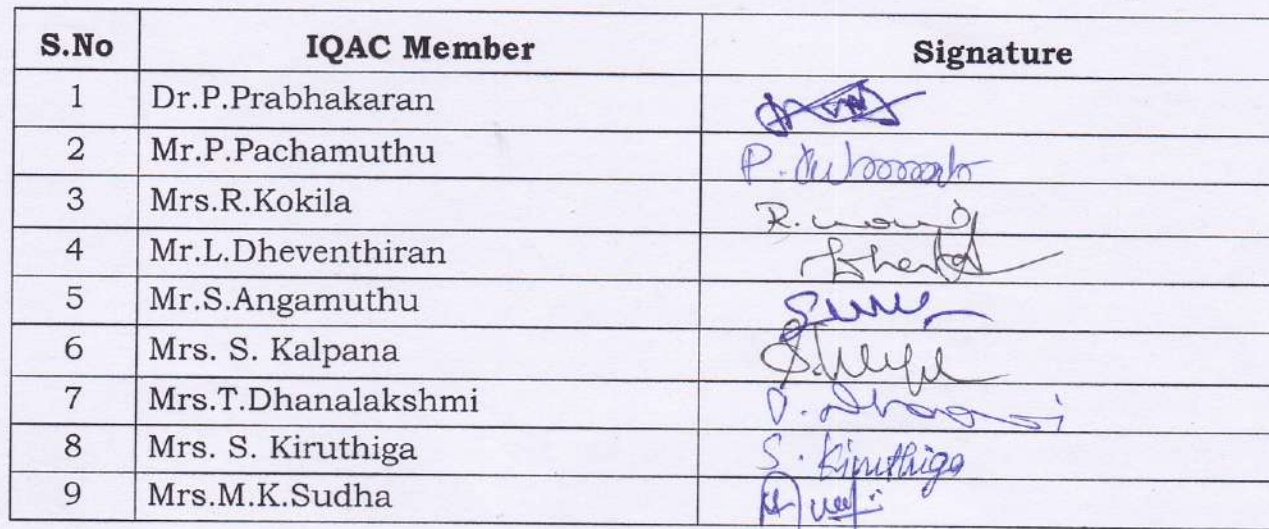 S.No IQAC Member Signature
1 Dr.P.Prabhakaran
2 Mr.P.Pachamuthu P.
3 Mrs.R.Kokila R.
4 Mr.L.Dheventhiran
5 Mr.S.Angamuthu
6 Mrs. S. Kalpana
7 Mrs.T.Dhanalakshmi
8 Mrs. S. Kiruthiga S. Kiruthiga
9 Mrs.M.K.Sudha